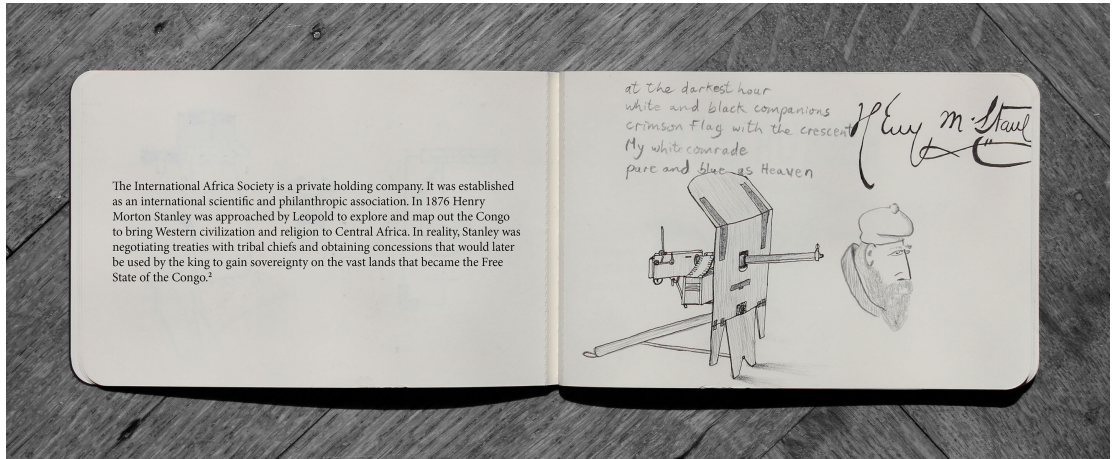 The International Africa Society is a private holding company. It was established
as an international scientific and philanthropic association. In 1876 Henry
Morton Stanley was approached by Leopold to explore and map out the Congo
to bring Western civilization and religion to Central Africa. In reality, Stanley was
negotiating treaties with tribal chiefs and obtaining concessions that would later
be used by the king to gain sovereignty on the vast lands that became the Free
State of the Congo.²
at the darkest hour
white and black companions
crimson Flag with the crescent
My white comrade
pure and blue as Heaven
Henry M. Stanl